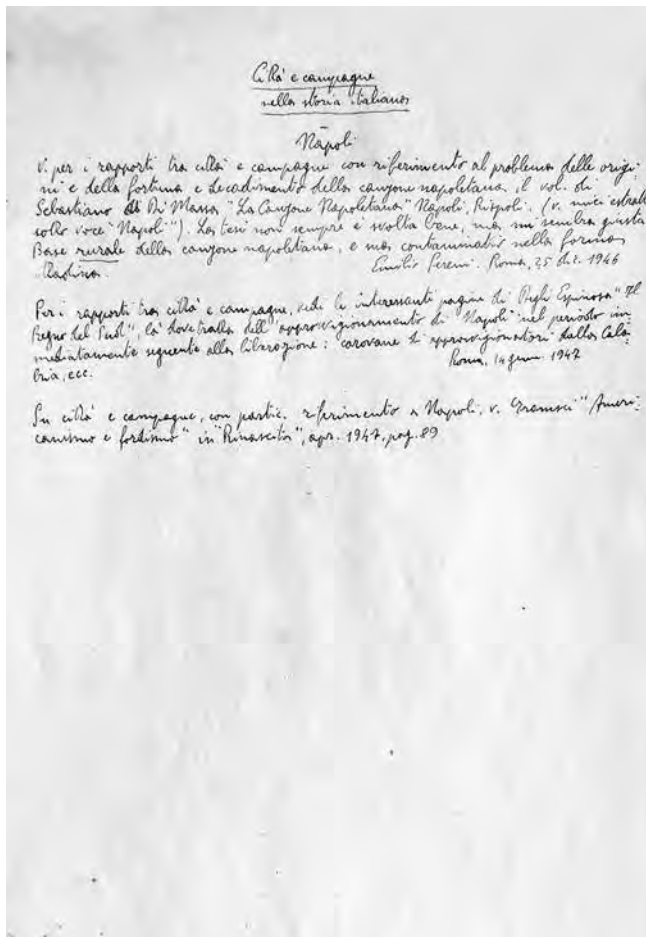 Città e campagne
nella storia italiana
Napoli
V. per i rapporti tra città e campagne con riferimento al problema delle origi-
ni e della fortuna e decadimento della canzone napoletana, il vol. di
Sebastiano Di Massa "La Canzone Napoletana" Napoli, Rispoli. (v. miei estratti
sotto voce "Napoli"). La tesi non sempre è svolta bene, ma mi sembra giusta
Base rurale della canzone napoletana, e sua contaminatio nella forma
Emilio Sereni. Roma, 25 dic. 1946
Per i rapporti tra città e campagne, vedi le interessanti pagine di Degli Espinosa "Il
Regno del Sud", là dove tratta dell'approvvigionamento di Napoli nel periodo im-
mediatamente seguente alla liberazione: carovane di approvvigionatori dalla Cala-
bria, ecc.
Roma, 14 genn. 1947
Su città e campagne, con partic. riferimento a Napoli, v. Gramsci "Ameri-
canismo e fordismo" in "Rinascita", apr. 1947, pag. 89